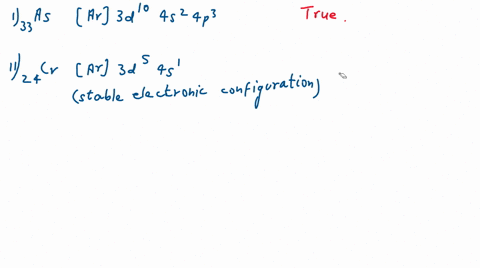 i) ₃₃As [Ar] 3d¹⁰ 4s² 4p³ True.
ii) ₂₄Cr [Ar] 3d⁵ 4s¹
(stable electronic configuration)